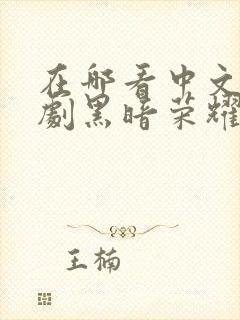 在哪看中文
劇黑暗荣耀
王楠